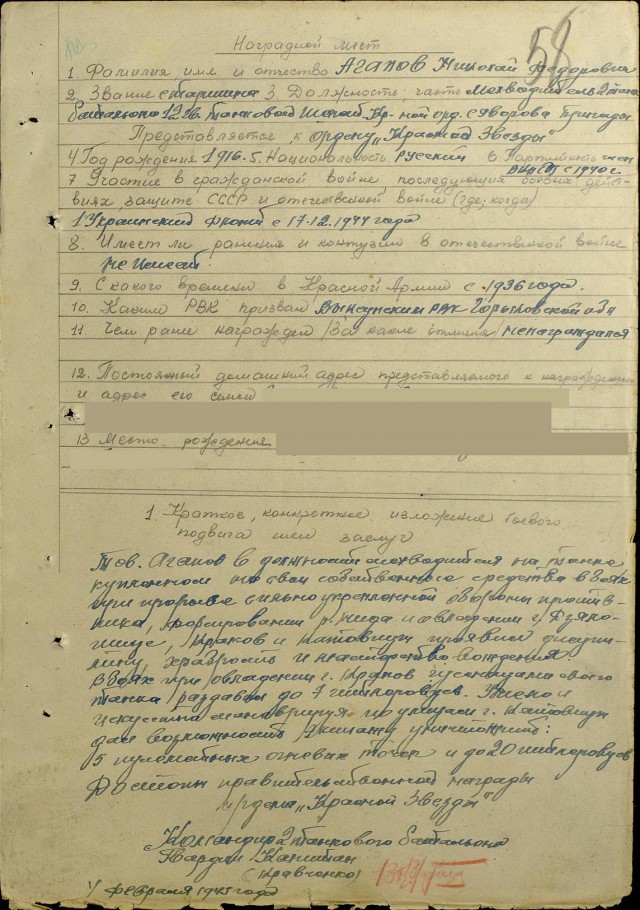 58
Наградной лист
1 Фамилия, имя и отчество Агапов Николай Федорович
2, Звание старшина 3 Должность, часть Мехводитель 2 танк
батальона 121 гв. танковой Кр-ной орд. Суворова бригады
Представляется к ордену „Красной Звезды"
4. Год рождения 1916. 5. Национальность Русский 6 Партийность член
ВКП(б) с 1940 г.
7 Участие в гражданской войне последующих боевых дейст-
виях защите СССР и отечественной войне (где, когда)
1 Украинский фронт с 17.12.1944 года
8. Имеет ли ранения и контузии в отечественной войне
не имеет.
9. С какого времени в Красной Армии с 1936 года.
10. Каким РВК призван Выксунским РВК Горьковской обл
11. Чем ранее награжден /за какие отличия/ не награждался
12. Постоянный домашний адрес представляемого к награждению
и адрес его семьи
13 Место рождения
1. Краткое, конкретное изложение боевого
подвига или заслуг
Тов. Агапов в должности мехводителя на танке
купленном на свои собственного средства в боях
при прорыве сильно укрепленной обороны против-
ника, форсировании р. Нида и овладении г. Дзяло-
шице, Краков и Катовицы проявил дисцип-
лину, храбрость и мастерство вождения.
В боях при овладении г. Краков гусеницами своего
танка раздавил до 7 гитлеровцев. Умело и
искусно маневрируя по улицам г. Катовицы
дал возможность экипажу уничтожить:
5 пулеметных огневых точек и до 20 гитлеровцев
Достоин правительственной награды
ордена „Красной Звезды"
Командир 2 танкового батальона
Гвардии Капитан
(Кравченко)
февраля 1945 года